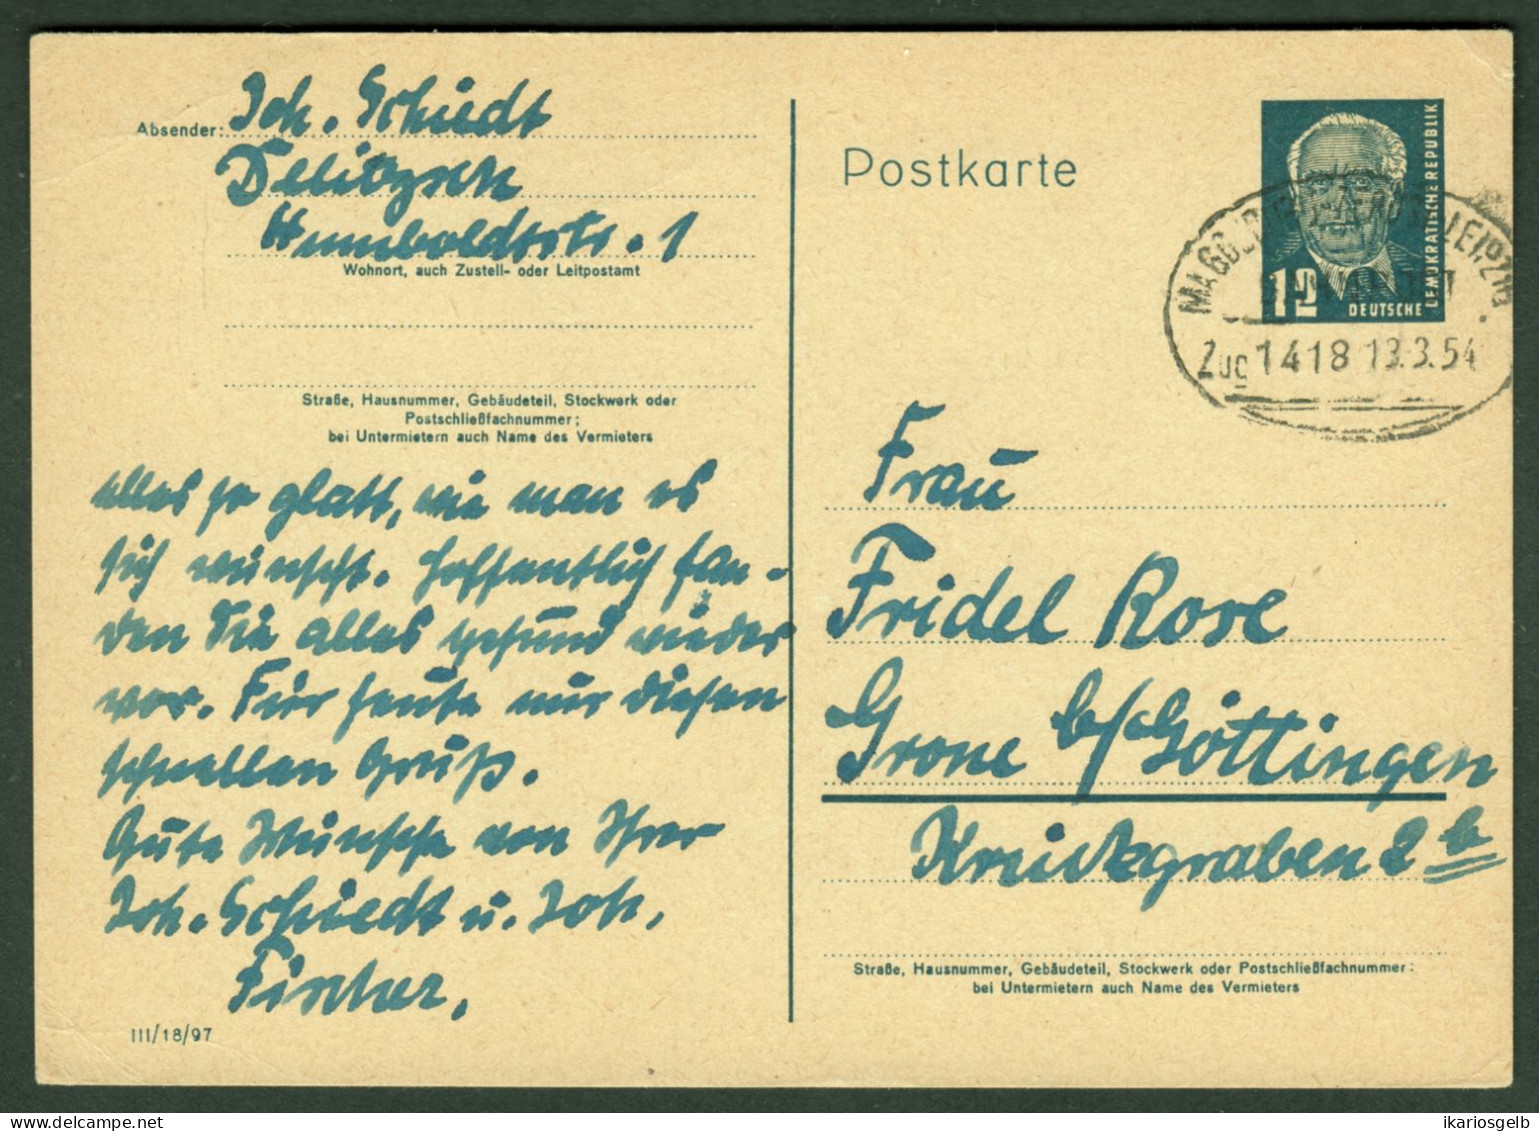 Absender: Joh. Schiedt
Delitzsch
Humboldtstr. 1
Wohnort, auch Zustell- oder Leitpostamt
Straße, Hausnummer, Gebäudeteil, Stockwerk oder
Postschließfachnummer;
bei Untermietern auch Name des Vermieters
alles so glatt, wie man es
sich wünscht. Hoffentlich fan-
den Sie alles gesund wieder
vor. Für heute nur diesen
schnellen Gruß.
Gute Wünsche von Ihrer
Joh. Schiedt u. Joh.
Fischer.
III/18/97
Postkarte
12
DEUTSCHE
DEMOKRATISCHE REPUBLIK
LEIPZIG
Zug 1418 13.3.54
Frau
Fridel Rose
Grone b/Göttingen
Kreuzgraben 2 b
Straße, Hausnummer, Gebäudeteil, Stockwerk oder Postschließfachnummer:
bei Untermietern auch Name des Vermieters
ikariosgelb